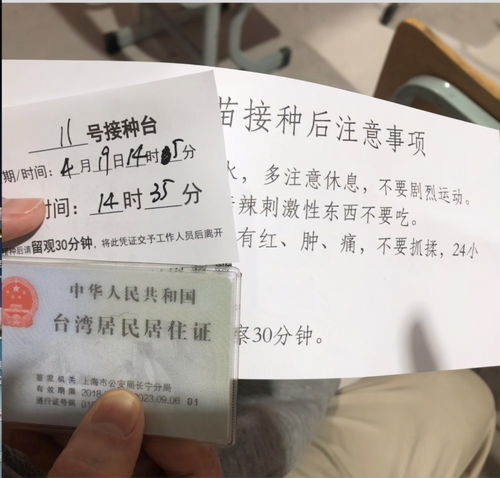 11 号接种台
期/时间: 4月19日14时05分
时间: 14时35分
种后请留观30分钟，将此凭证交予工作人员后离开
苗接种后注意事项
水，多注意休息，不要剧烈运动。
辛辣刺激性东西不要吃。
有红、肿、痛，不要抓揉，24小
察30分钟。
中华人民共和国
台湾居民居住证
签发机关 上海市公安局长宁分局
有效期限 2018 2023.09.06 01
通行证号码